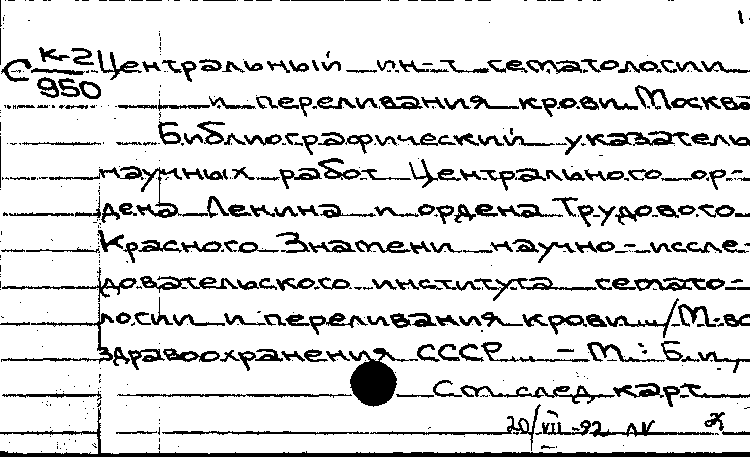 С К-2/950 Центральный ин-т гематологии
и переливания крови. Москва
Библиографический указатель
научных работ Центрального ор-
дена Ленина и ордена Трудового
Красного Знамени научно-иссле-
довательского института гемато-
логии и переливания крови... /М-во
здравоохранения СССР... - М.: Б.и,
См след карт
20/VII-92